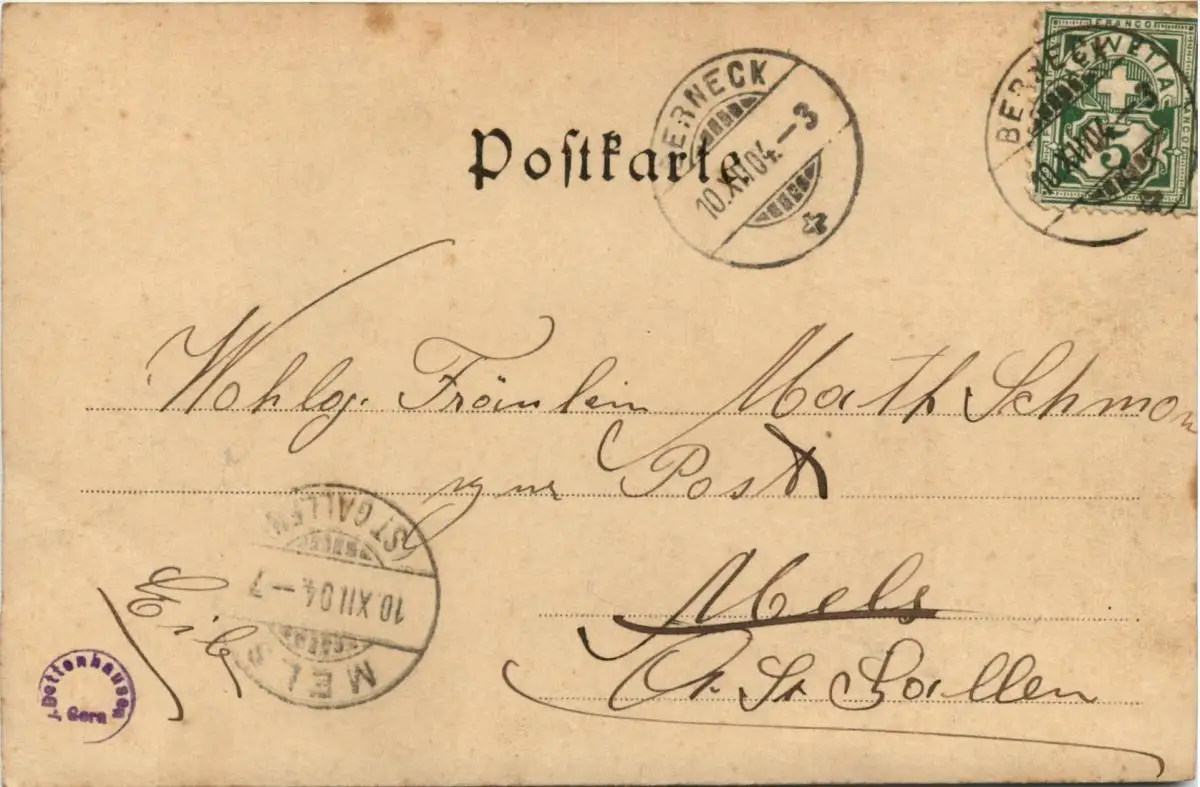 Postkarte
BERNECK
10.XII.04.–3
BERNECK
10.XII.04.–3
FRANCO
HELVETIA
FRANCO
5
Wohlg. Fräulein Math Schmon
zur Post
Mels
Ct. St. Gallen
Eilg
MELS
10.XII.04.–7
(ST GALLEN)
J. Dottenhausen
Gern